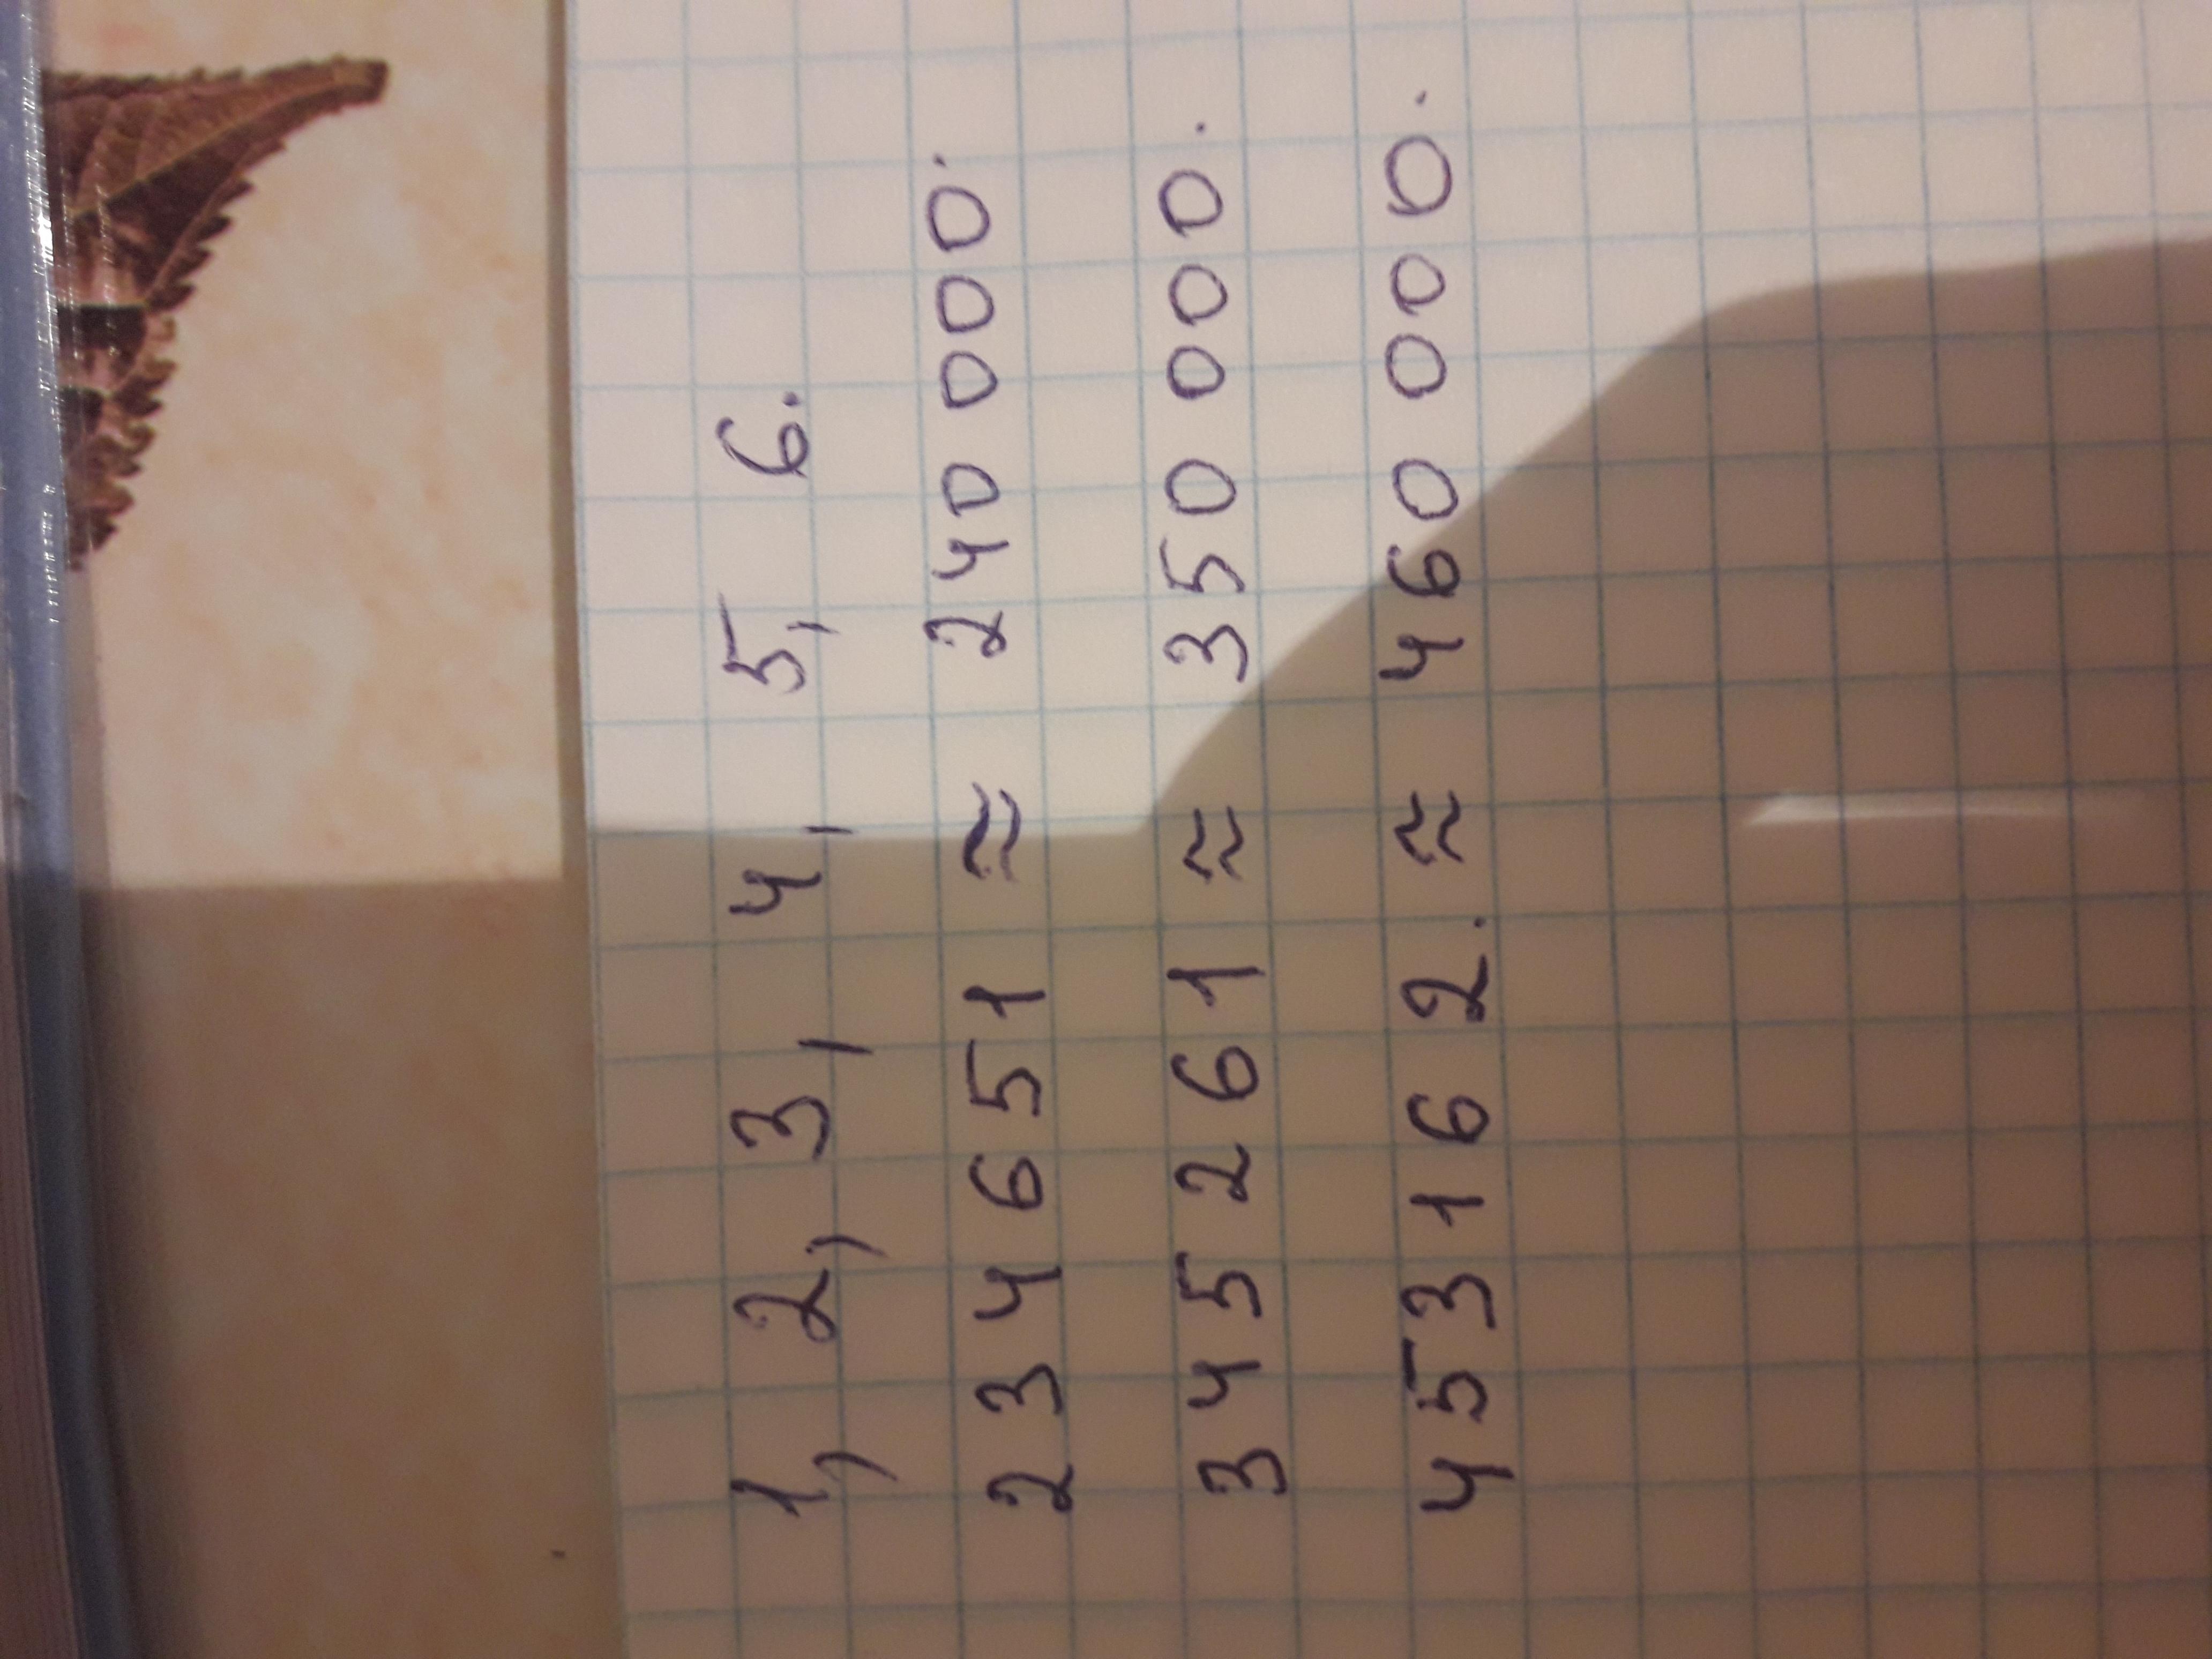 1, 2, 3, 4, 5, 6.
234651 ≈ 240 000.
345261 ≈ 350 000.
453162. ≈ 460 000.